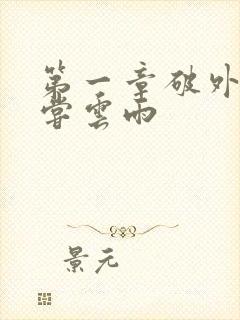 第一章破外
嘗雲雨
景元